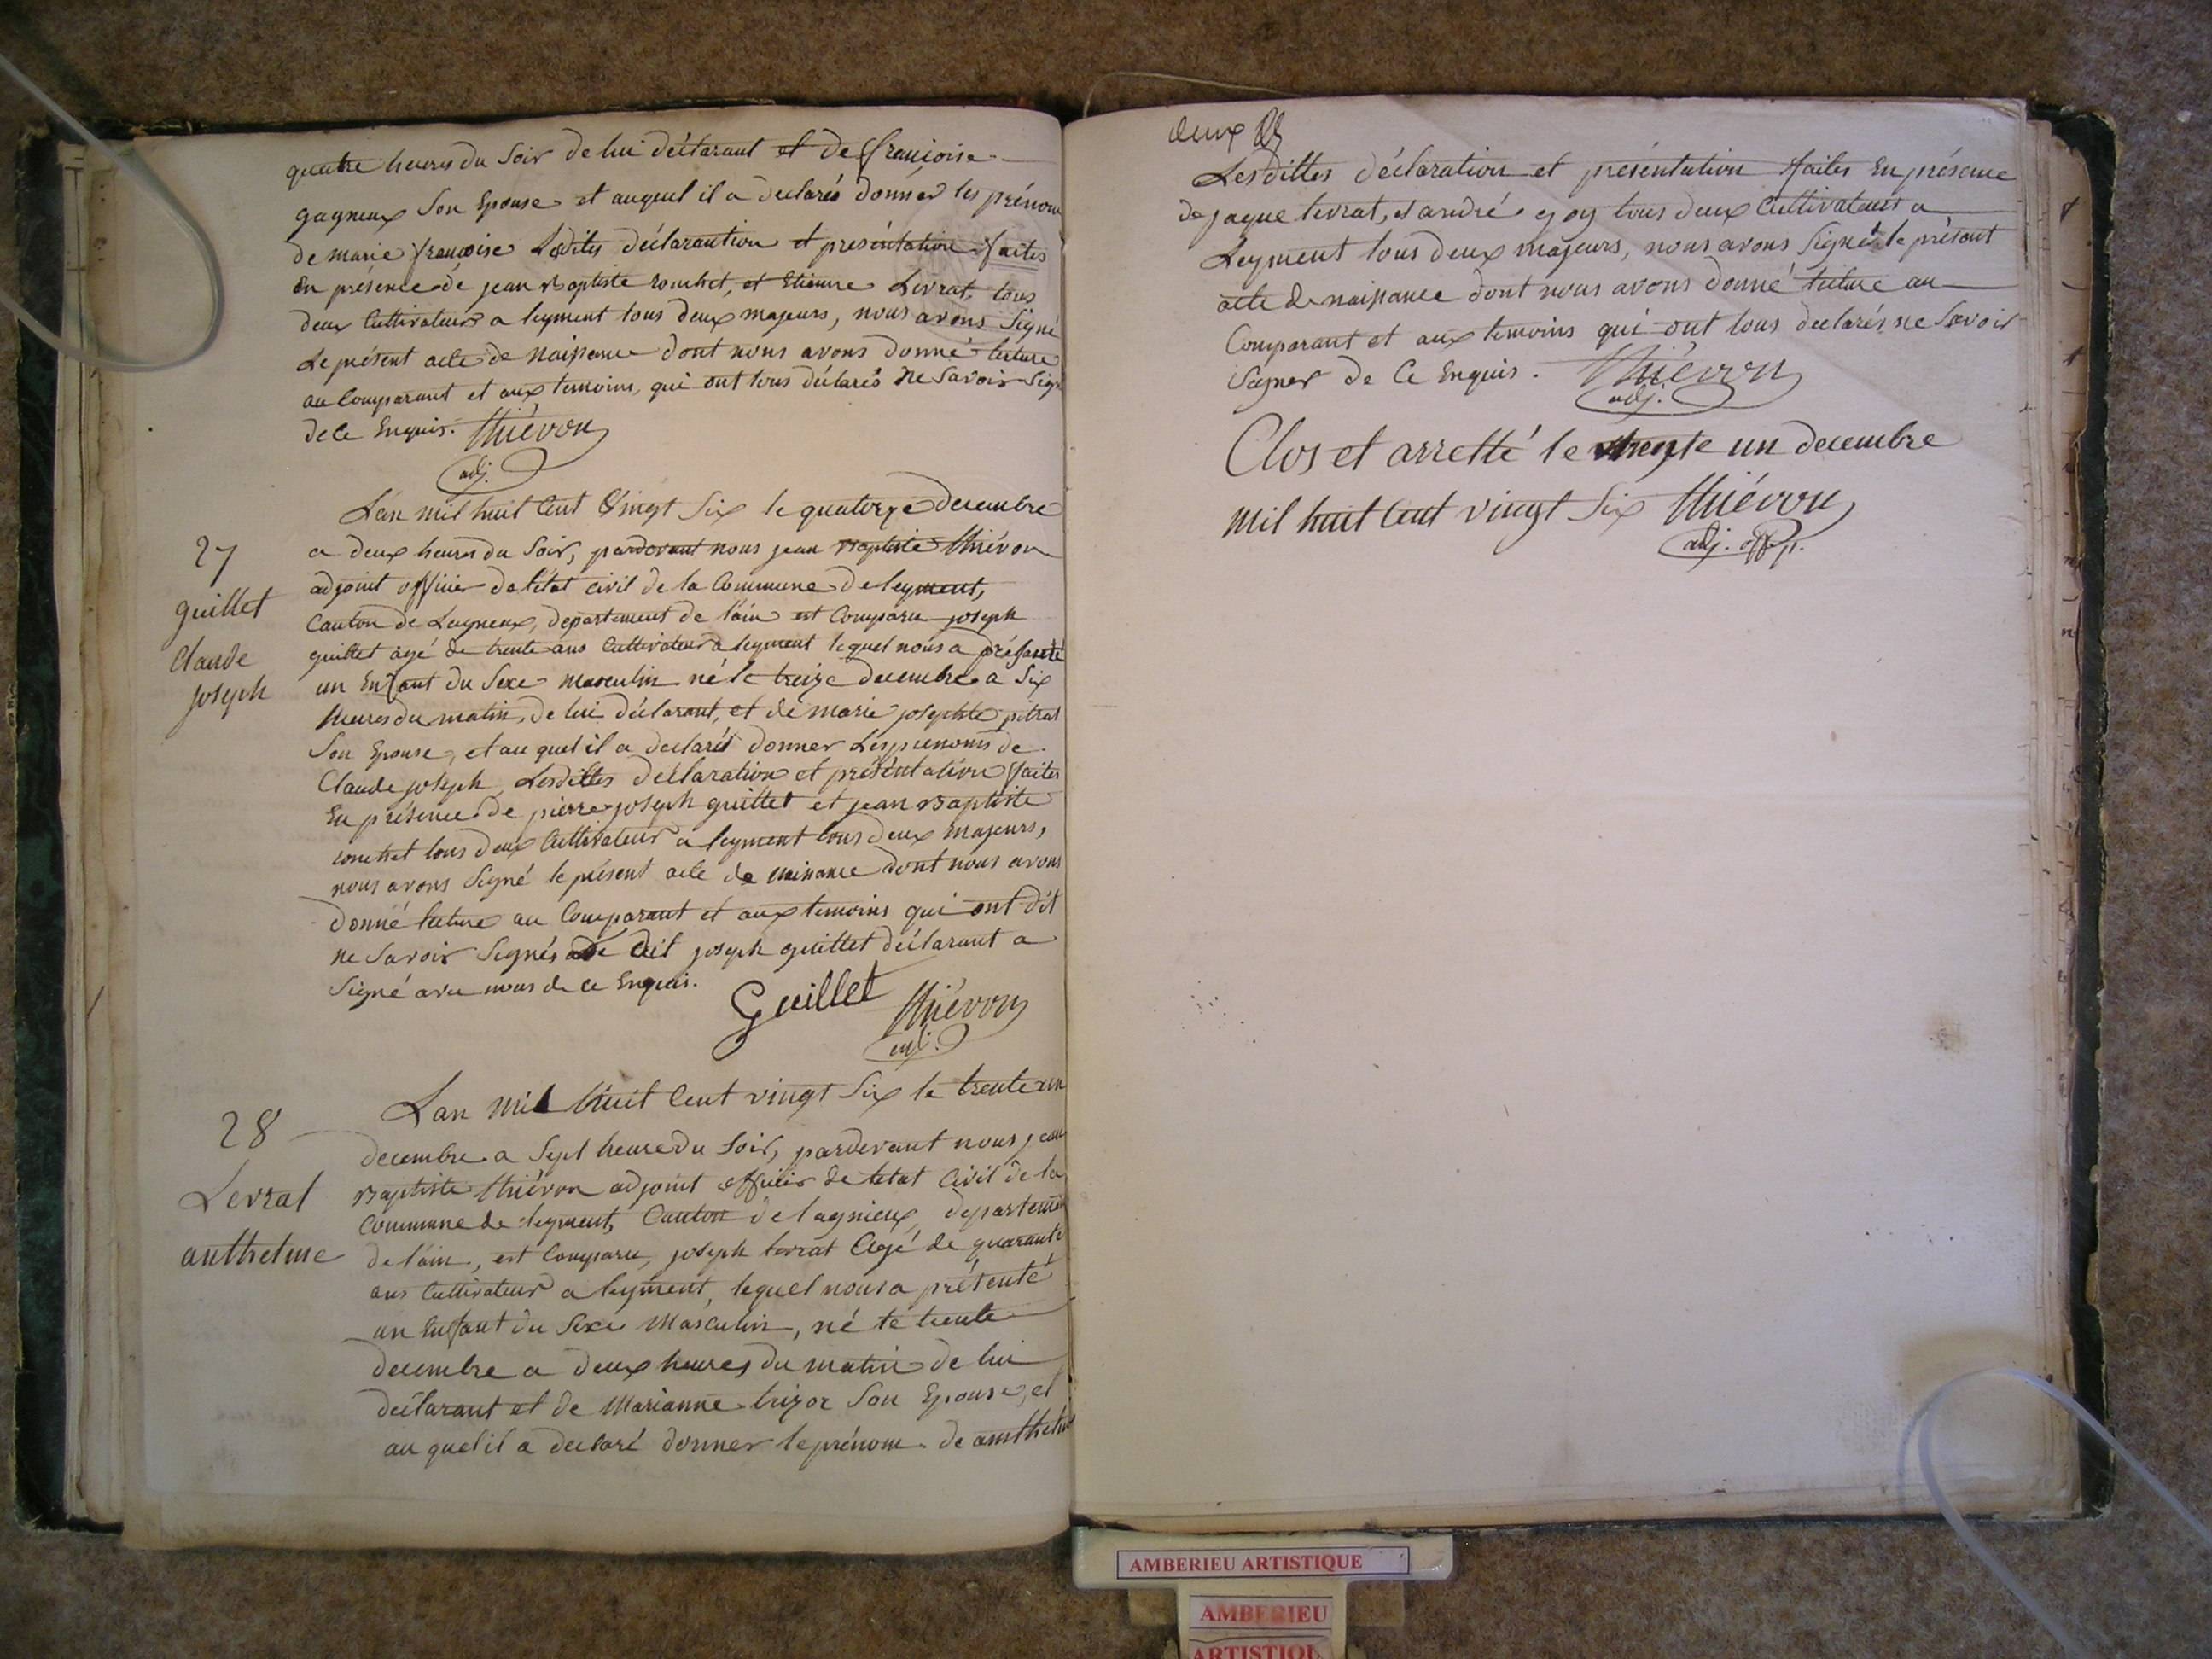 quatre heures du Soir de lui déclarant et de françoise
gagneux Son Epouse et auquel il a declarés donner les prénom
de marie françoise Lesdites déclaration et presentation faites
En présence de jean Baptiste et Etienne Levrat, tous
deux Cultivateurs a leyment tous deux majeurs, nous avons Signé
Le présent acte de Naissance dont nous avons donné lecture
au Comparant et aux temoins, qui ont tous déclarés ne Savoir Sign
de ce Enquis. thiévon
adj.
Lan mil huit Cent Vingt Six le quatorze decembre
a deux heures du Soir, pardevant nous jean Baptiste thiévon
adjoint officier de létat civil de la Commune de leyment,
Canton de Lagneux, departement de lain est Comparu joseph
guillet agé de trente ans Cultivateur a leyment lequel nous a présenté
un Enfant du Sexe masculin né le treize decembre a Six
heures du matin, de lui déclarant, et de marie josephte pitrat
Son Epouse, et au quel il a declaré donner Les prenoms de
Claude joseph, Lesdittes déclaration et présentation faites
En présence de pierre joseph guillet et jean Baptiste
tous deux Cultivateur a leyment tous deux majeurs,
nous avons Signé le présent acte de naissance dont nous avons
donné lecture au Comparant et aux temoins qui ont dit
ne Savoir Signés dit joseph guillet déclarant a
Signé avec nous de ce Enquis.
Guillet thiévon
adj.
27
guillet
Claude
joseph
Lan mil huit Cent vingt Six le trente un
decembre a Sept heure du Soir, pardevant nous jean
Baptiste thiévon adjoint officier de letat Civil de la
Commune de leyment, Canton de lagnieux, departemen
de lain, est Comparu, joseph levrat agé de quarante
ans Cultivateur a leyment, lequel nous a présenté
un Enfant du Sexe Masculin, né le trente
decembre a deux heures du matin de lui
déclarant et de Marianne Son Epouse, et
au quel il a declaré donner le prénom de anthelme
28
Levrat
anthelme
deux
Lesdittes déclaration et présentation faites En présence
de jaque levrat, et andré tous deux Cultivateurs a
Leyment tous deux majeurs, nous avons Signé le présent
acte de naissance dont nous avons donné lecture au
Comparant et aux temoins qui ont tous declarés ne Savoir
Signer de Ce Enquis. Thiévon
adj.
Clos et arretté le trente un decembre
mil huit Cent vingt Six thiévon
adj. off. p.
AMBERIEU ARTISTIQUE
AMBERIEU
ARTISTIQU